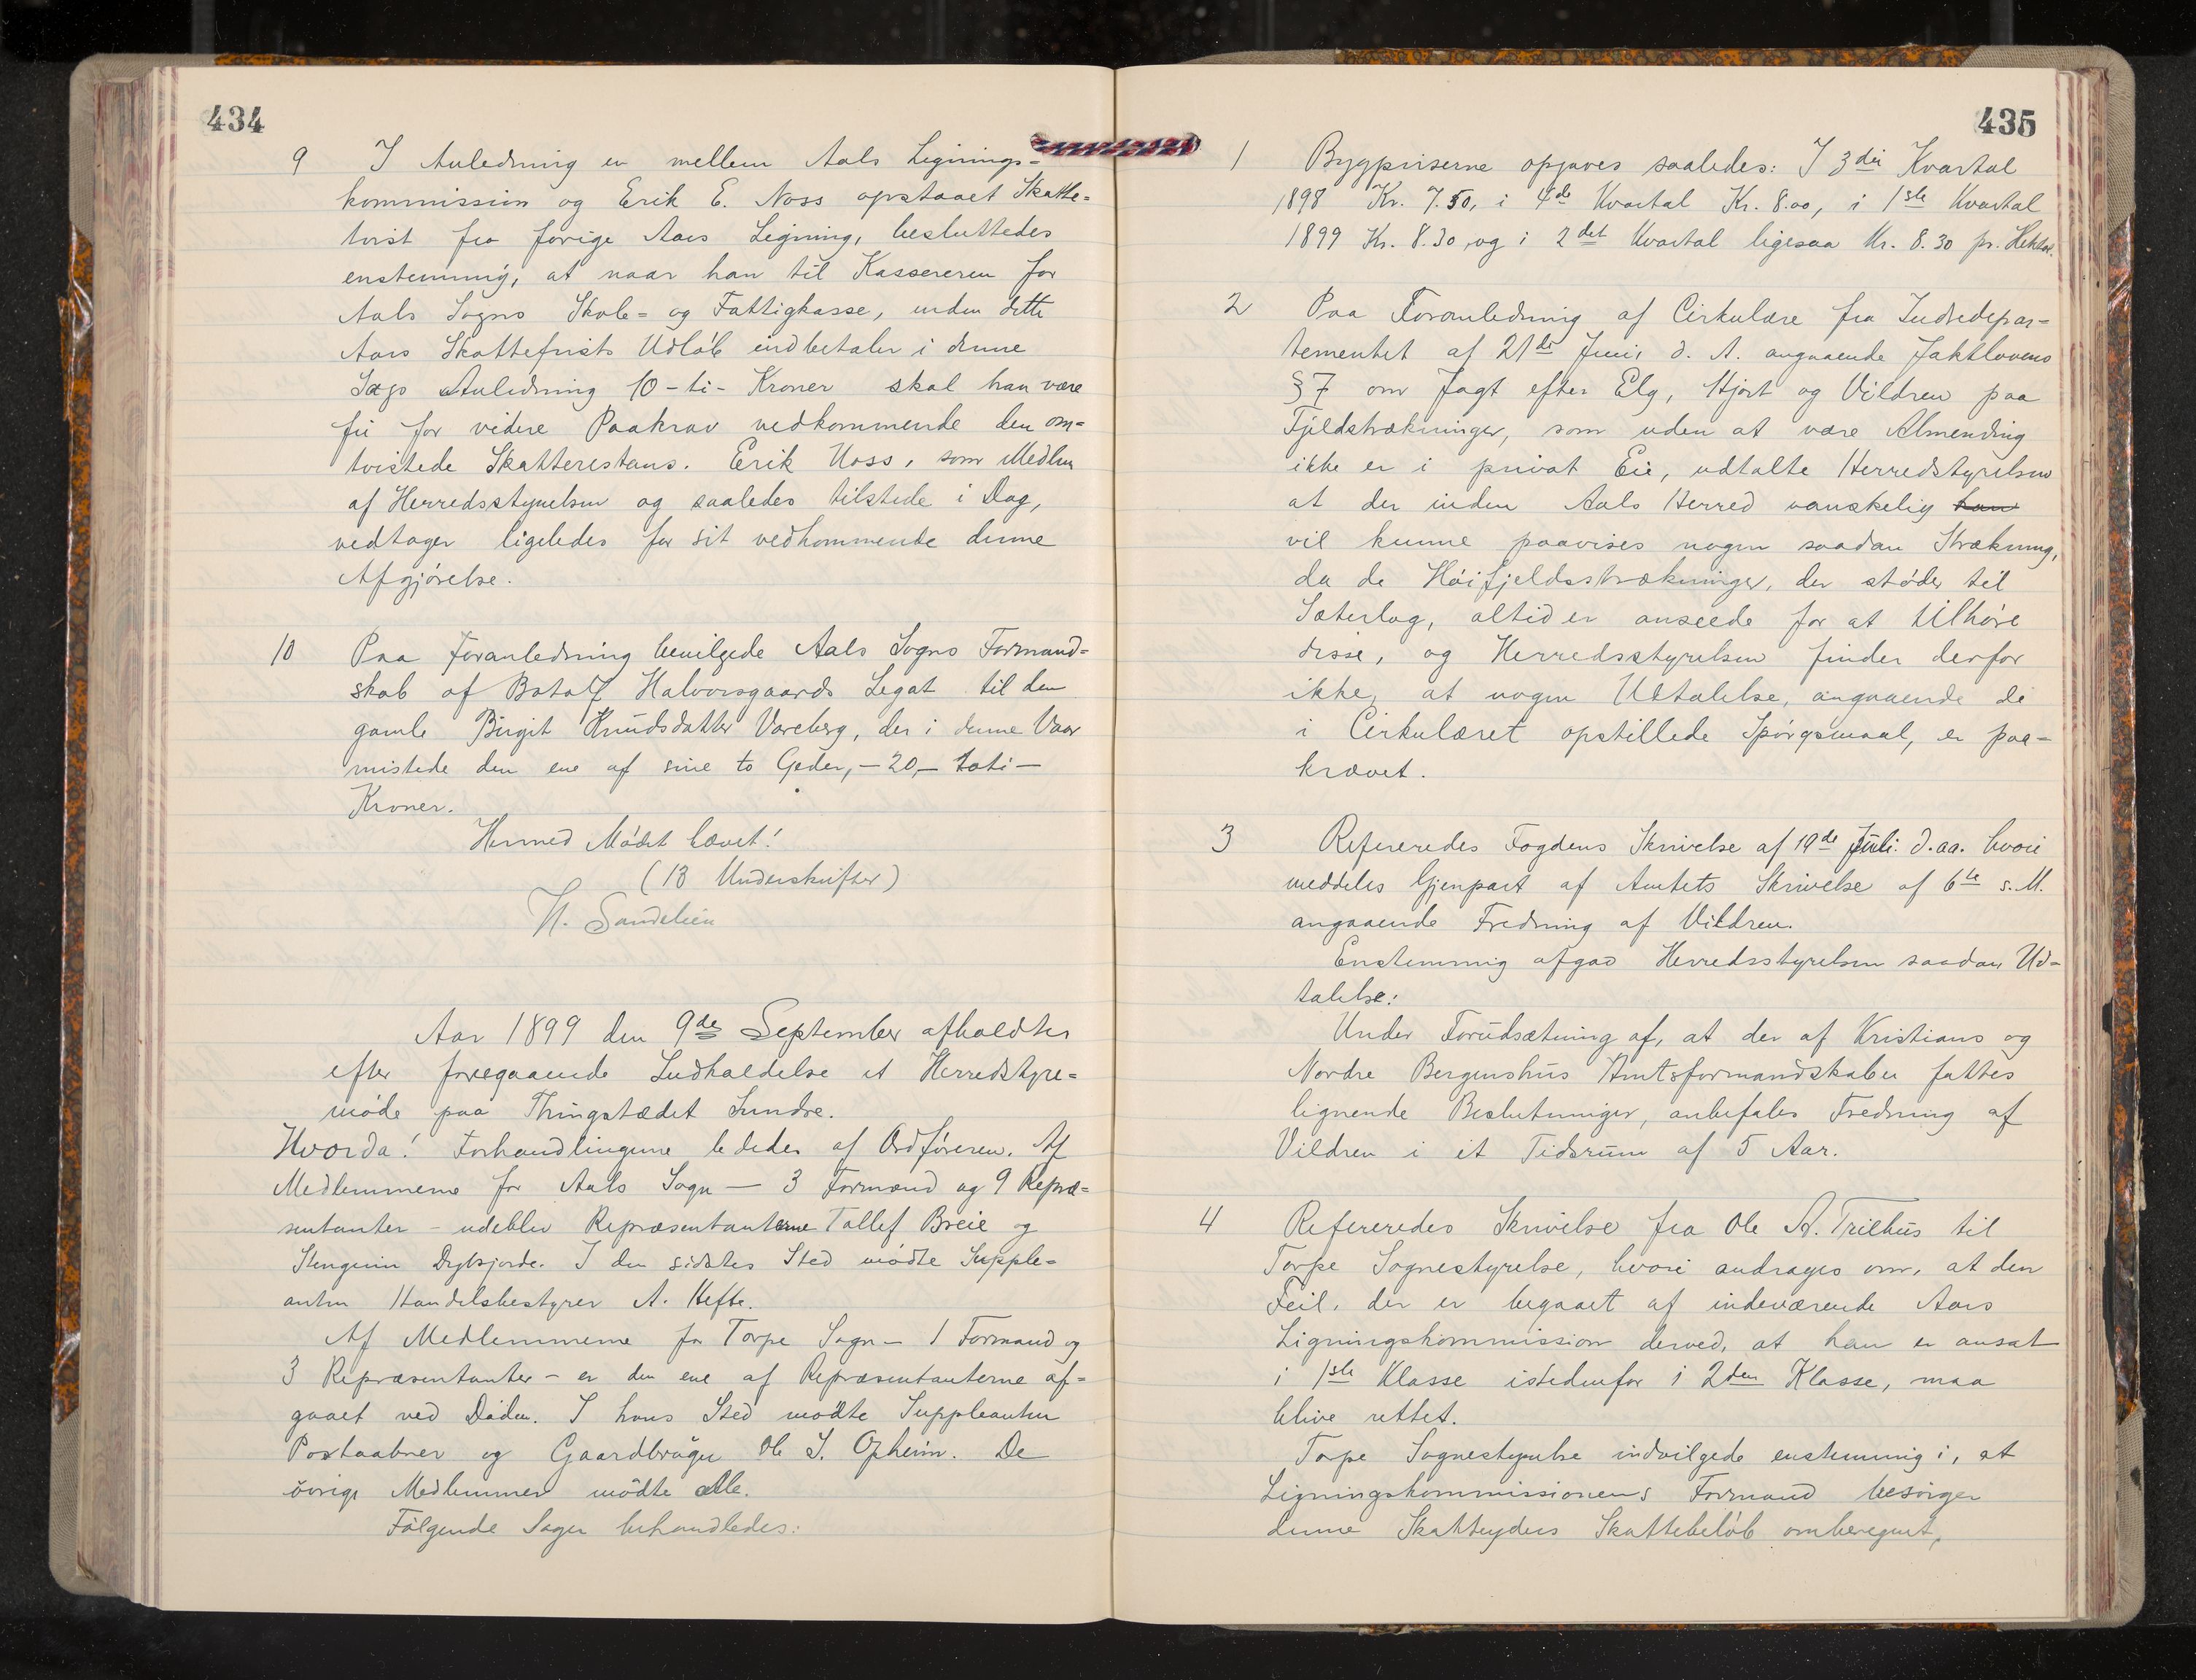 434
9 I Anledning en mellem Aals Lignings=
kommission og Erik E. Noss opstaaet Skatte=
tvist fra forige Aars Ligning, besluttedes
enstemmig, at naar han til Kassereren for
Aals Sogns Skole= og Fattigkasse, inden dette
Aars Skattefrists Udløb indbetaler i denne
Sags Anledning 10-ti- Kroner skal han være
fri for videre Paakrav vedkommende den om=
tvistede Skatterestans. Erik Noss, som Medlem
af Herredsstyrelsen og saaledes tilstede i Dag,
vedtager ligeledes for sit vedkommende denne
Afgjørelse.
10 Paa Foranledning bevilgede Aals Sogns Formand=
skab af Botolf Halvorsgaards Legat til den
gamle Birgit Knudsdatter Vareberg, der i denne Vaar
mistede den ene af sine to Geder, - 20,- toti -
Kroner.
Hermed Mødet hævet!
(13 Underskrifter)
H. Sandelien
Aar 1899 den 9de September afholdtes
efter foregaaende Indkaldelse et Herredstyre=
møde paa Thingstædet Sundre.
Hvorda! Forhandlingerne lededes af Ordføreren. Af
Medlemmerne for Aals Sogn - 3 Formænd og 9 Repræ=
sentanter - udeblev Repræsentanterne Tollef Breie og
Stengrim . I den sidstes Sted mødte Supple=
anten Handelsbestyrer A. Hefte.
Af Medlemmerne for Torpe Sogn - 1 Formand og
3 Repræsentanter - er den ene af Repræsentanterne af=
gaaet ved Døden. I hans Sted mødte Suppleanten
Postaabner og Gaardbruger Ole S. Opheim. De
øvrige Medlemmer mødte alle.
Følgende Sager behandledes:
435
1 Bygpriserne opgaves saaledes: I 3die Kvartal
1898 Kr. 7.50, i 4de Kvartal Kr. 8.00, i 1ste Kvartal
1899 Kr. 8.30, og i 2det Kvartal ligesaa Kr. 8.30 pr. Hektol.
2 Paa Foranledning af Cirkulære fra Indredepar=
tementet af 21de Juni d. A. angaaende Jaktlovens
§ 7 om Jagt efter Elg, Hjort og Vildren paa
Fjeldstrækninger, som uden at være Almending
ikke er i privat Eie, udtalte Herredstyrelsen
at der inden Aals Herred vanskelig kan
vil kunne paavises nogen saadan Strækning,
da de Høifjeldsstrækninger, der støder til
Sæterlag, altid er anseede for at tilhøre
disse, og Herredsstyrelsen finder derfor
ikke, at nogen Udtalelse, angaaende de
i Cirkulæret opstillede Spørgsmaal, er paa=
krævet.
3 Refereredes Fogdens Skrivelse af 19de Juli d.aa. hvori
meddeles Gjenpart af Amtets Skrivelse af 6te s. M.
angaaende Fredning af Vildren.
Enstemmig afgav Herredsstyrelsen saadan Ud=
talelse:
Under Forudsætning af, at der af Kristians og
Nordre Bergenshus Amtsformandskaber fattes
lignende Beslutninger, anbefales Fredning af
Vildren i et Tidsrum af 5 Aar.
4 Refereredes Skrivelse fra Ole A. Trilhus til
Torpe Sognestyrelse, hvori andrages om, at den
Feil, der er begaaet af indeværende Aars
Ligningskommission derved, at han er ansat
i 1ste Klasse istedenfor i 2den Klasse, maa
blive rettet.
Torpe Sognestyrelse indvilgede enstemmig i, at
Ligningskommissionens Formand besørger
denne Skatteyders Skattebeløb omberegnet,